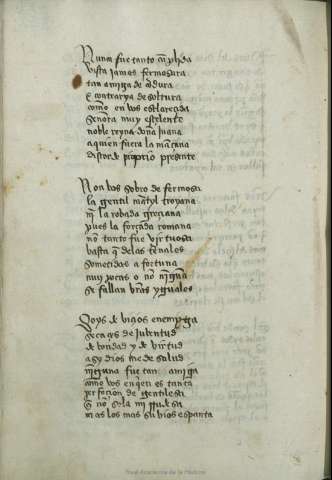 Nunca fue tanto cunplida
vista jamas fermosura
tan amiga de cordura
e contrarya de soltura
como en vos esclareçida
señora muy esçelente
noble reyna doña juana
a quien fuera la mançana
presente

Non vos sobro de fermosa
la gentil troyana
nj la robada greçiana
pues la forçada romana
no tanto fue virtuosa
basta q̃ de las
sometidas a fortuna
muy pocas o no njguna
se fallan yguales

Soys de viçios enemyga
de iuventud
de bondad y de virtud
dios me de salud
njguna fue tan amiga
como vos en q̃en es tanta
perfeçion de gentilesa
q̃ no sola mj
mas los mas sabios espanta
Real Academia de la Historia